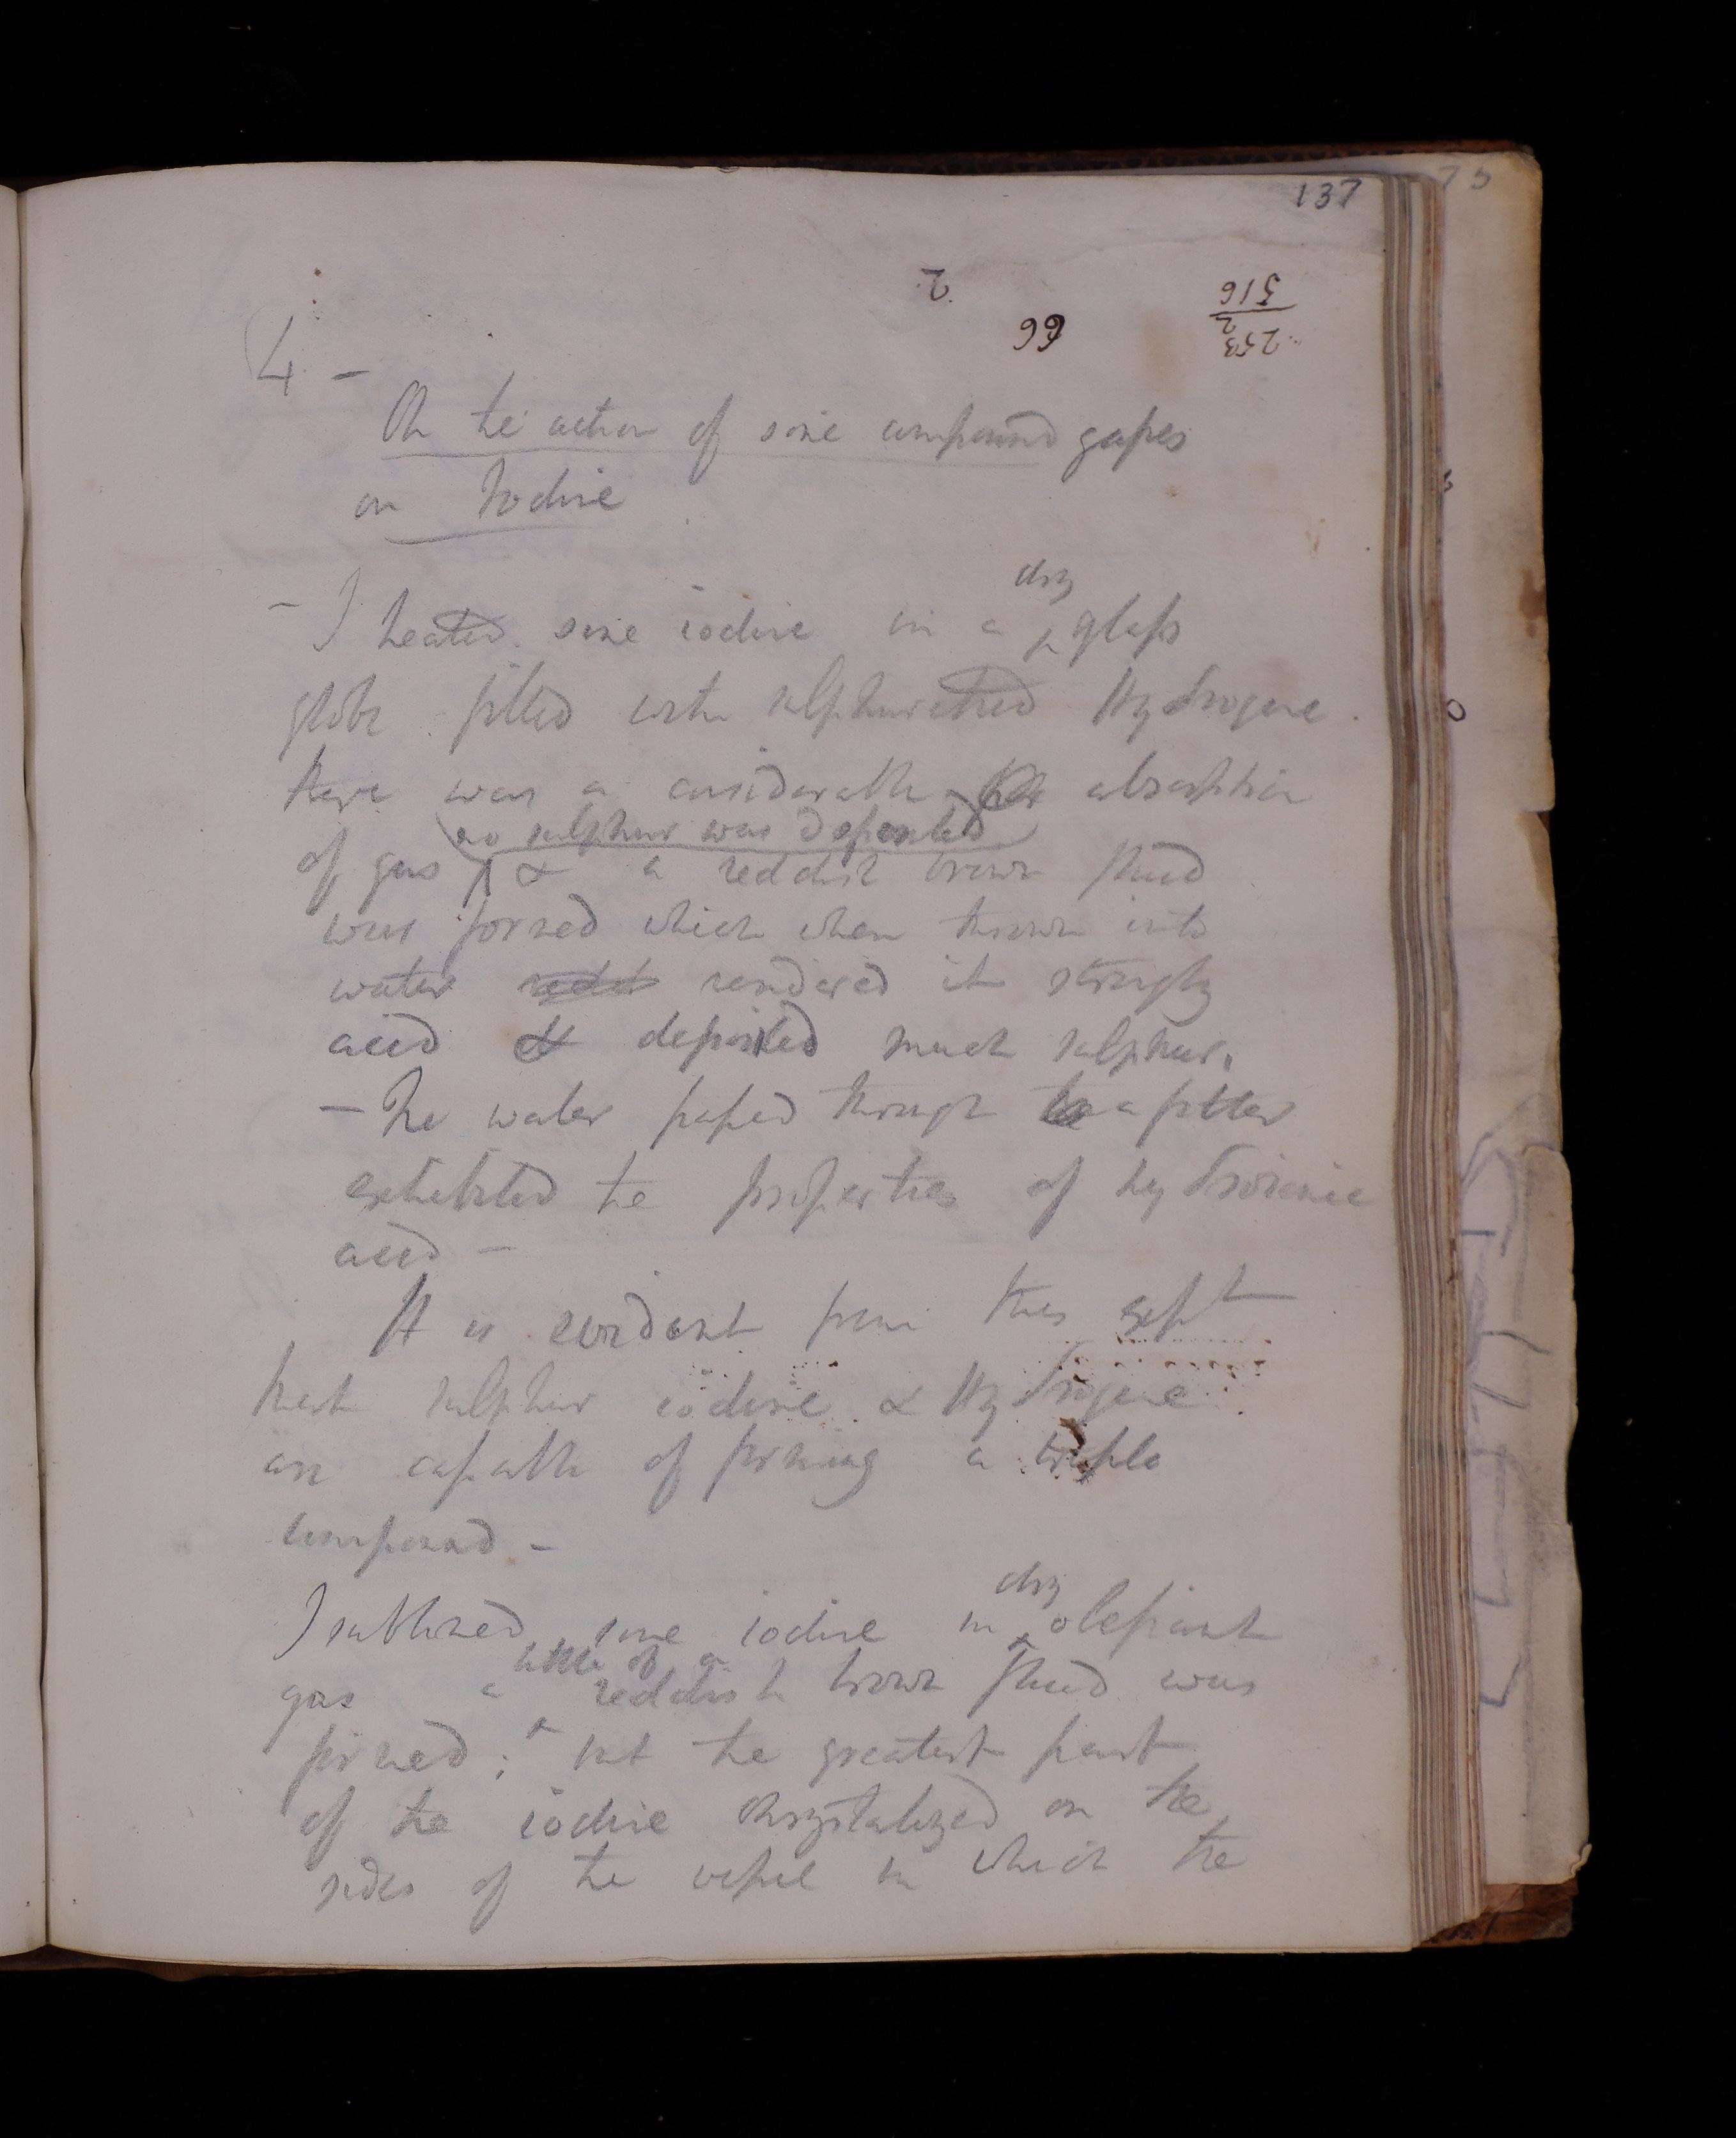 137
2
66
253
2
516
4 -
On the action of some compound gasses
on Iodine
- I heated some iodine in a dry glass
globe filled with sulphuretted Hydrogene.
there was a considerable absorption
of gas no sulphur was deposited & a reddish brown fluid
was formed which when thrown into
water redd rendered it strongly
acid & deposited much sulphur.
- The water passed through a filter
exhibited the properties of hydroionic
acid -
It is evident from this expt
that sulphur iodine & Hydrogene
are capable of forming a triple
compound -
I sublimed some iodine in dry olefiant
gas a little of a reddish brown fluid was
formed; but the greatest part
of the iodine chrystalized on the
sides of the vessel in which the